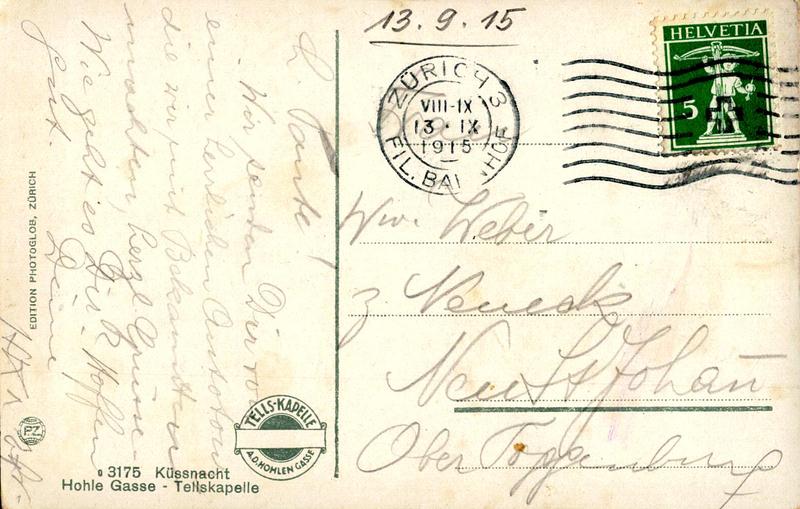 13.9.15
HELVETIA
5
ZÜRICH 3
VIII-IX
13 · IX
1915
FIL. BAHNHOF
Frau
Wwe. Weber
z. Neueck
Neu St Johann
Ober Toggenburg
L. Tante!
Wir senden Dir von
einer herrlichen Autotour
die wir mit Bekannten
machten, herzl. Grüsse.
Wie geht es Dir? Hoffen
gut. Deine
TELLS-KAPELLE
A.D. HOHLEN GASSE
EDITION PHOTOGLOB, ZÜRICH
PZ
3175 Küssnacht
Hohle Gasse - Tellskapelle